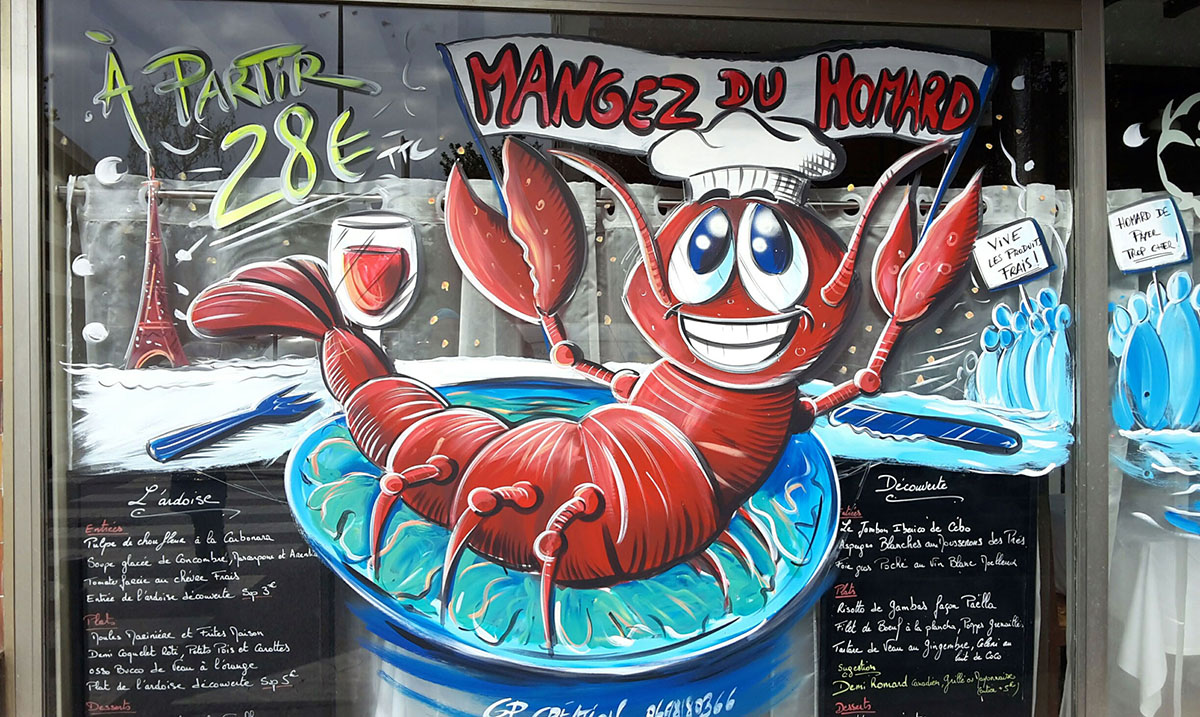 À PARTIR
28€ TTC
MANGEZ DU HOMARD
VIVE
LES PRODUITS
FRAIS!
HOMARD DE
PAPER
TROP CHER!
L'ardoise
Entrées
Pulpe de choufleur à la Carbonara
Soupe glacée de Concombre, Mascarpone et
Tomate farcie au chèvre Frais
Entrée de l'ardoise découverte Sup 3€
Plats
Moules Marinière et Frites Maison
Demi Coquelet Rôti, Petits Pois et Carottes
Osso Bucco de Veau à l'orange
Plat de l'ardoise découverte Sup 5€
Desserts
Découverte
Entrées
Le Jambon Iberico de Cebo
Asperges Blanches aux Mousserons des Prés
Foie gras Poché au Vin Blanc Moelleux
Plats
Risotto de Gambas façon Paëlla
Filet de Boeuf à la plancha, Pommes grenaille
Tartare de Veau au Gingembre, Céleri au
lait de Coco
Suggestion
Demi Homard Canadien, Grillé ou Mayonnaise
(entier + 5€)
Desserts
GP CREATION 0698180366